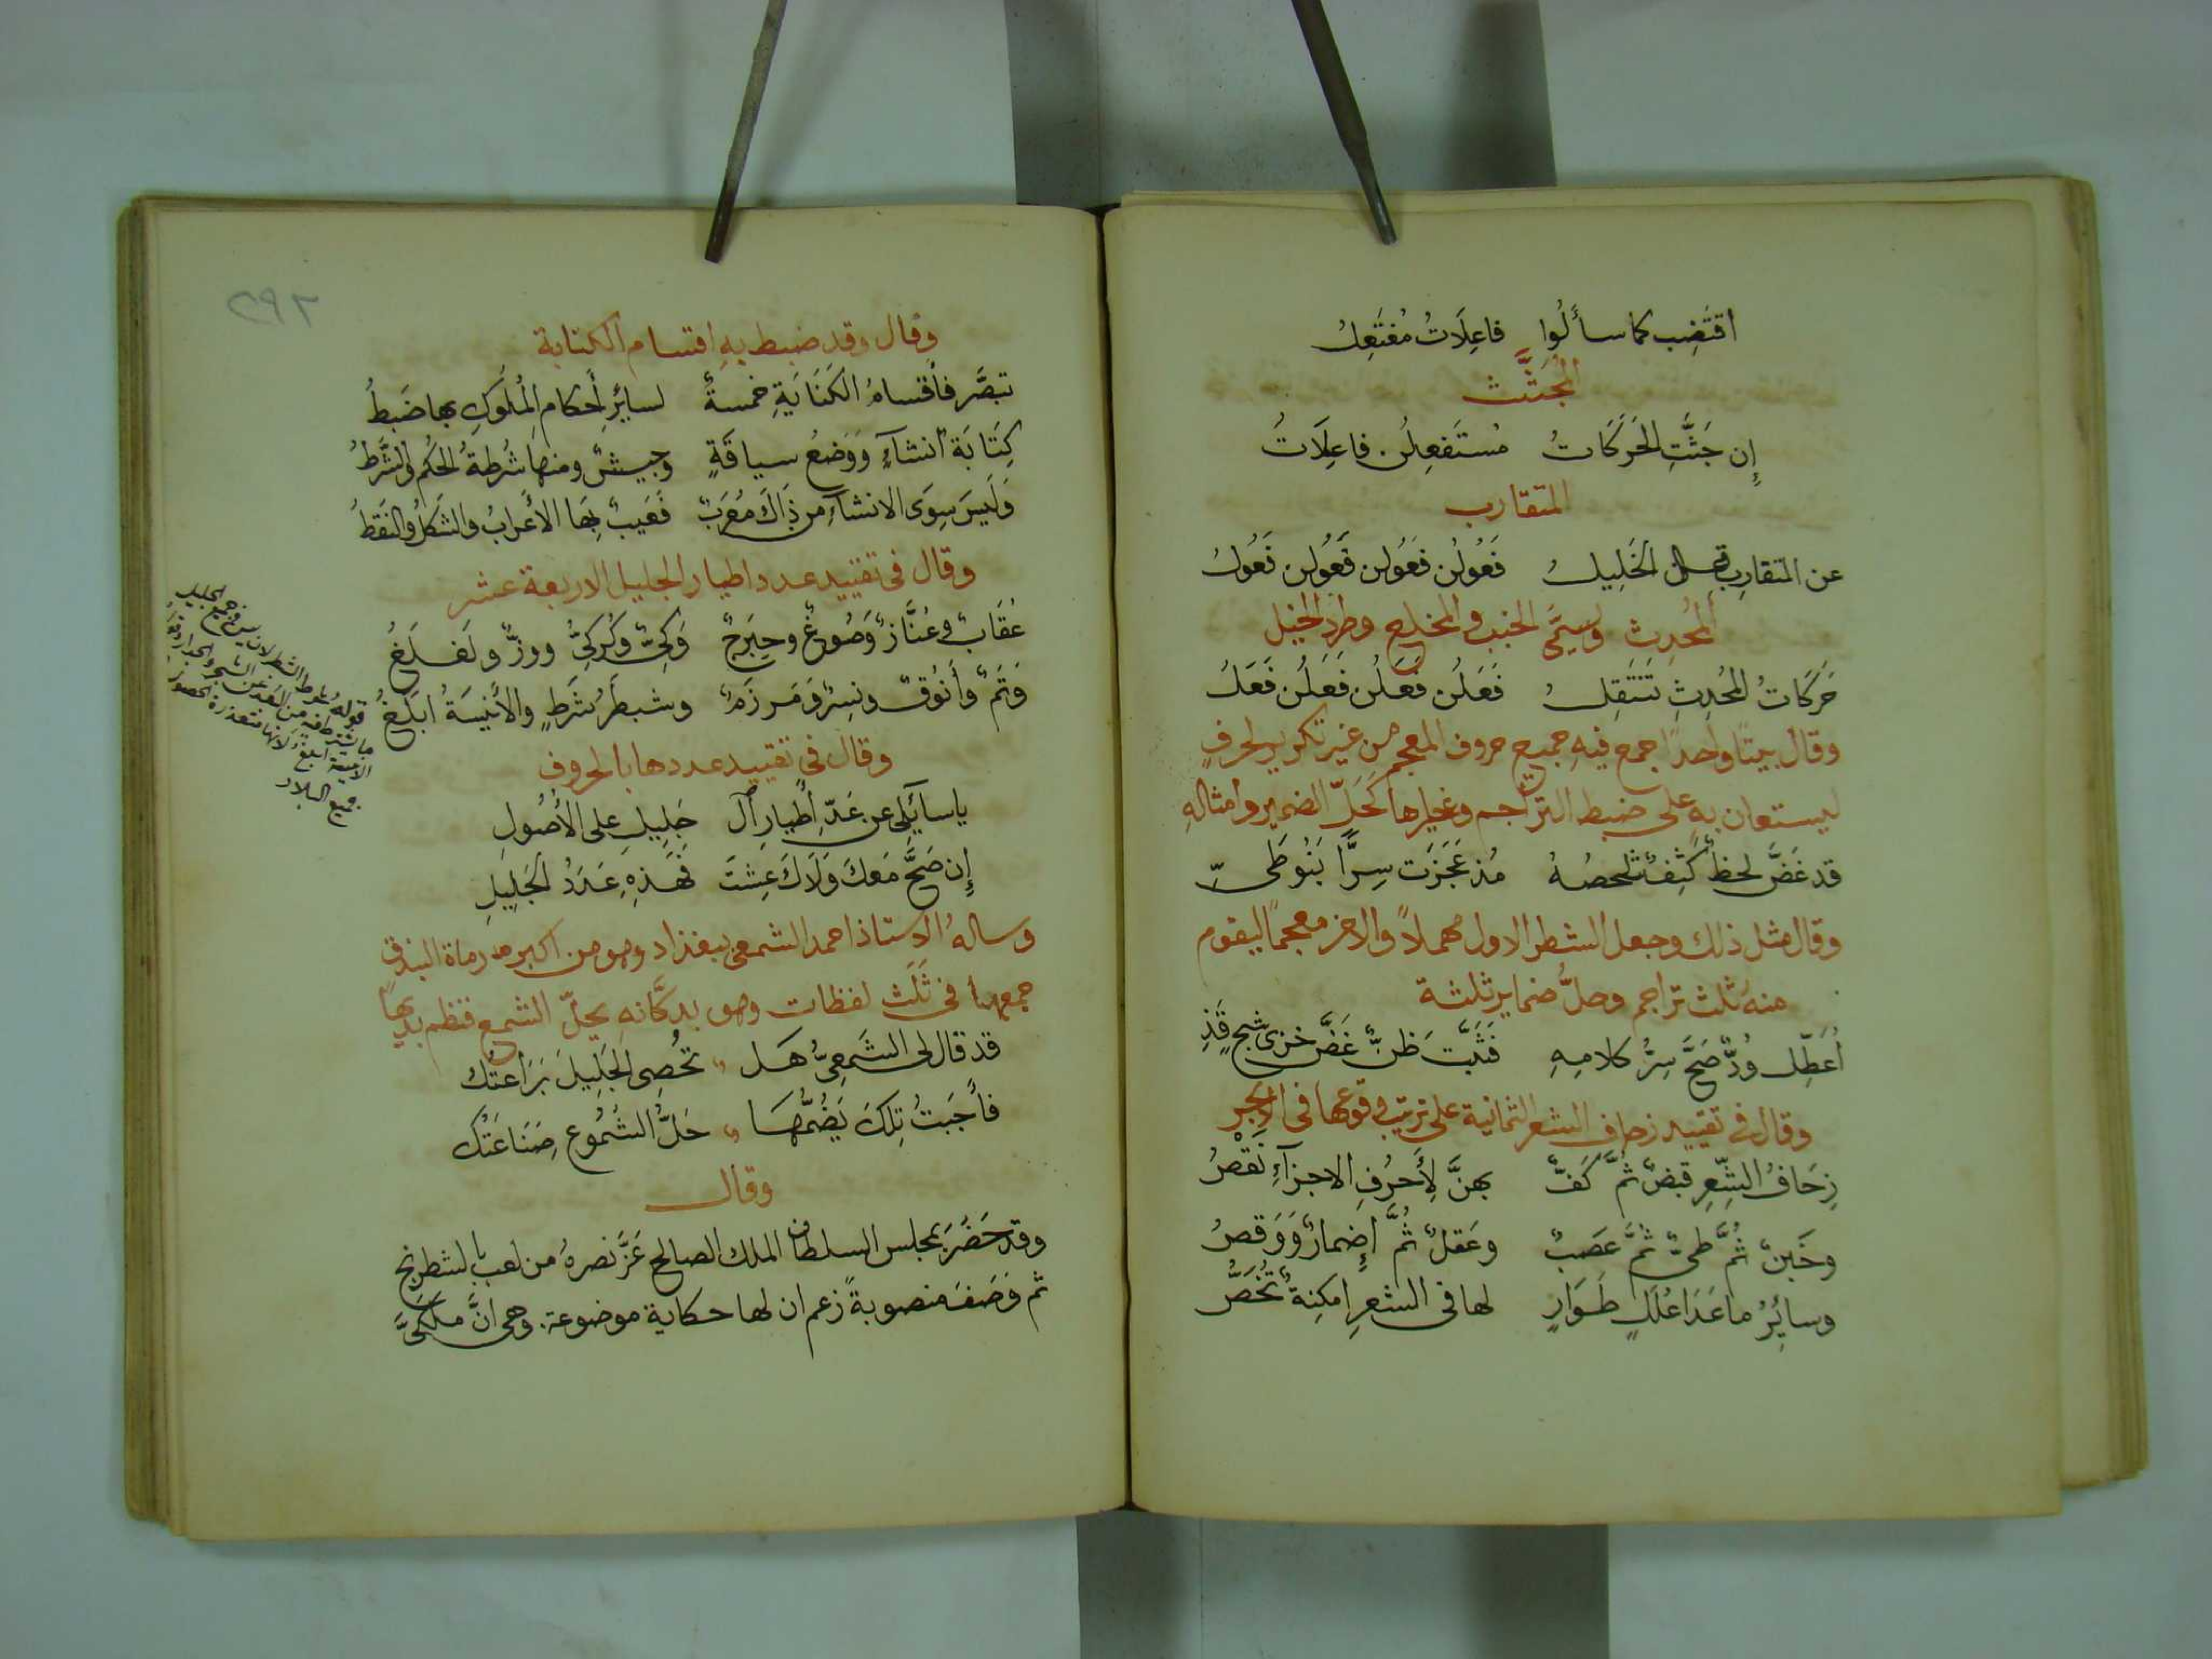 اقتَضِب كما سأَلُوا فاعِلَاتُ مُفتَعِلُ
المُجتَثّ
إِن جَثَّتِ الحَرَكَاتُ مُستَفعِلُن فاعِلَاتُ
المتقارب
عن المتقارِب قال الخَلِيلُ فَعُولُن فَعُولن فَعُولن فَعُولُ
المُحدث ويُسمَّى الخبب والمخلع وطرد الخيل
حَرَكَاتُ المُحدِثِ تَنتَقِلُ فَعَلُن فَعَلُن فَعَلُن فَعَلُ
وقال بيتًا واحدًا جمع فيهِ جميع حروف المعجم من غير تكرير لحرفٍ
ليستعان بهِ على ضبط التراجم وغيرها كَحَلّ الضمير وأمثالهِ
قد غَضَّ لحظٌ كَثِفٌ شخصهُ مُذ عَجَزَت سِرًّا بَنُو طَيّ
وقال مثل ذلك وجعل الشطر الاول مهملاً والاخر معجمًا ليقوم
منهُ ثلث تراجم وحلُّ ضماير ثلثة
أُعَطِّل وُدٌّ صَحَّ سِرُّ كلامِهِ فَثَبَّتَ ظنٌّ غَضَّ خزي شج قذ
وقال في تقييد زحاف الشعر الثمانية على ترتيب وقوعها في الابحر
زِحَافُ الشِّعِرِ قبضٌ ثُمَّ كَفٌّ بهنَّ لِأَحرُفِ الاجزآءِ نَقصُ
وخَبنٌ ثُمَّ طيٌّ ثُمَّ عَصبٌ وعَقلٌ ثُمَّ إِضمارٌ وَوَقصُ
وسائِرُ ما عَدَا عُلَلٍ طَوَارٍ لها في الشعرِ امكِنةٌ تُخَصُّ
٢٩٢
وقال وقد ضبط بهِ اقسام الكتابة
تبصَّر فأَقسامُ الكِتَابَةِ خمسةٌ لسائِرِ أَحكامِ المُلُوكِ بها ضَبطُ
كِتَابَة انشآءٍ وَوَضعُ سياقَةٍ وجيشٌ ومنها شُرطةُ الحكم والشَّرطُ
وَلَيسَ سِوَى الانشآءِ من ذَاكَ مُعرَبٌ فَعَيبٌ بِهَا الأَعرابُ والشَكلُ والنَقطُ
وقال في تقييد عدد اطيار الجليل الاربعة عشر
عُقَابٌ وعُنَّازٌ وَصُوغٌ وحِبرَجٌ وَكيٌّ وكُركيٌّ ووزٌّ ولَغلَغُ
وَتَمٌّ وأَنُوقٌ ونِسرٌ وَمَرزَمٌ وشبطَرُ شَرَطٍ والأَنيسَةُ ابلَغُ
قوله شرط الشطر لان ليس في جميع الجليل
جميع البلاد
وقال في تقييد عددها بالحروف
يا سآئِلي عن عَدّ أَطيارِ آل جَلِيلِ على الأُصُولِ
إِن صَحَّ مَعكَ وَلَاكَ عِشتَ فهَذِهِ عَدَدُ الجَلِيلِ
وسالهُ الاستاذ احمد الشمعي ببغداد وهو من اكبر رماة البندق
جمعها في ثَلَث لفظات وهو بدكَّانهِ يحلّ الشمع فنظم بديهًا
قد قال لي الشَمعِيُّ هَل تُحصِي الجَلِيلَ بَرَاعتُك
فأَجَبتُ تِلكَ يَضُمُّهَا حَلُّ الشُمُوع صِنَاعَتُك
وقال
وقد حَضَرَ بمجلس السلطان الملك الصالح عَزَّ نصرهُ من لعب بالشطرنج
ثم وَصَفَ منصوبةً زعم ان لها حكاية موضوعة. وهي انَّ مَلكَيّ